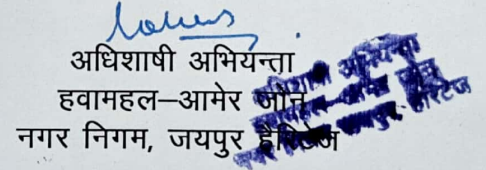 अधिशाषी अभियन्ता
हवामहल–आमेर जोन
नगर निगम, जयपुर हैरिटेज